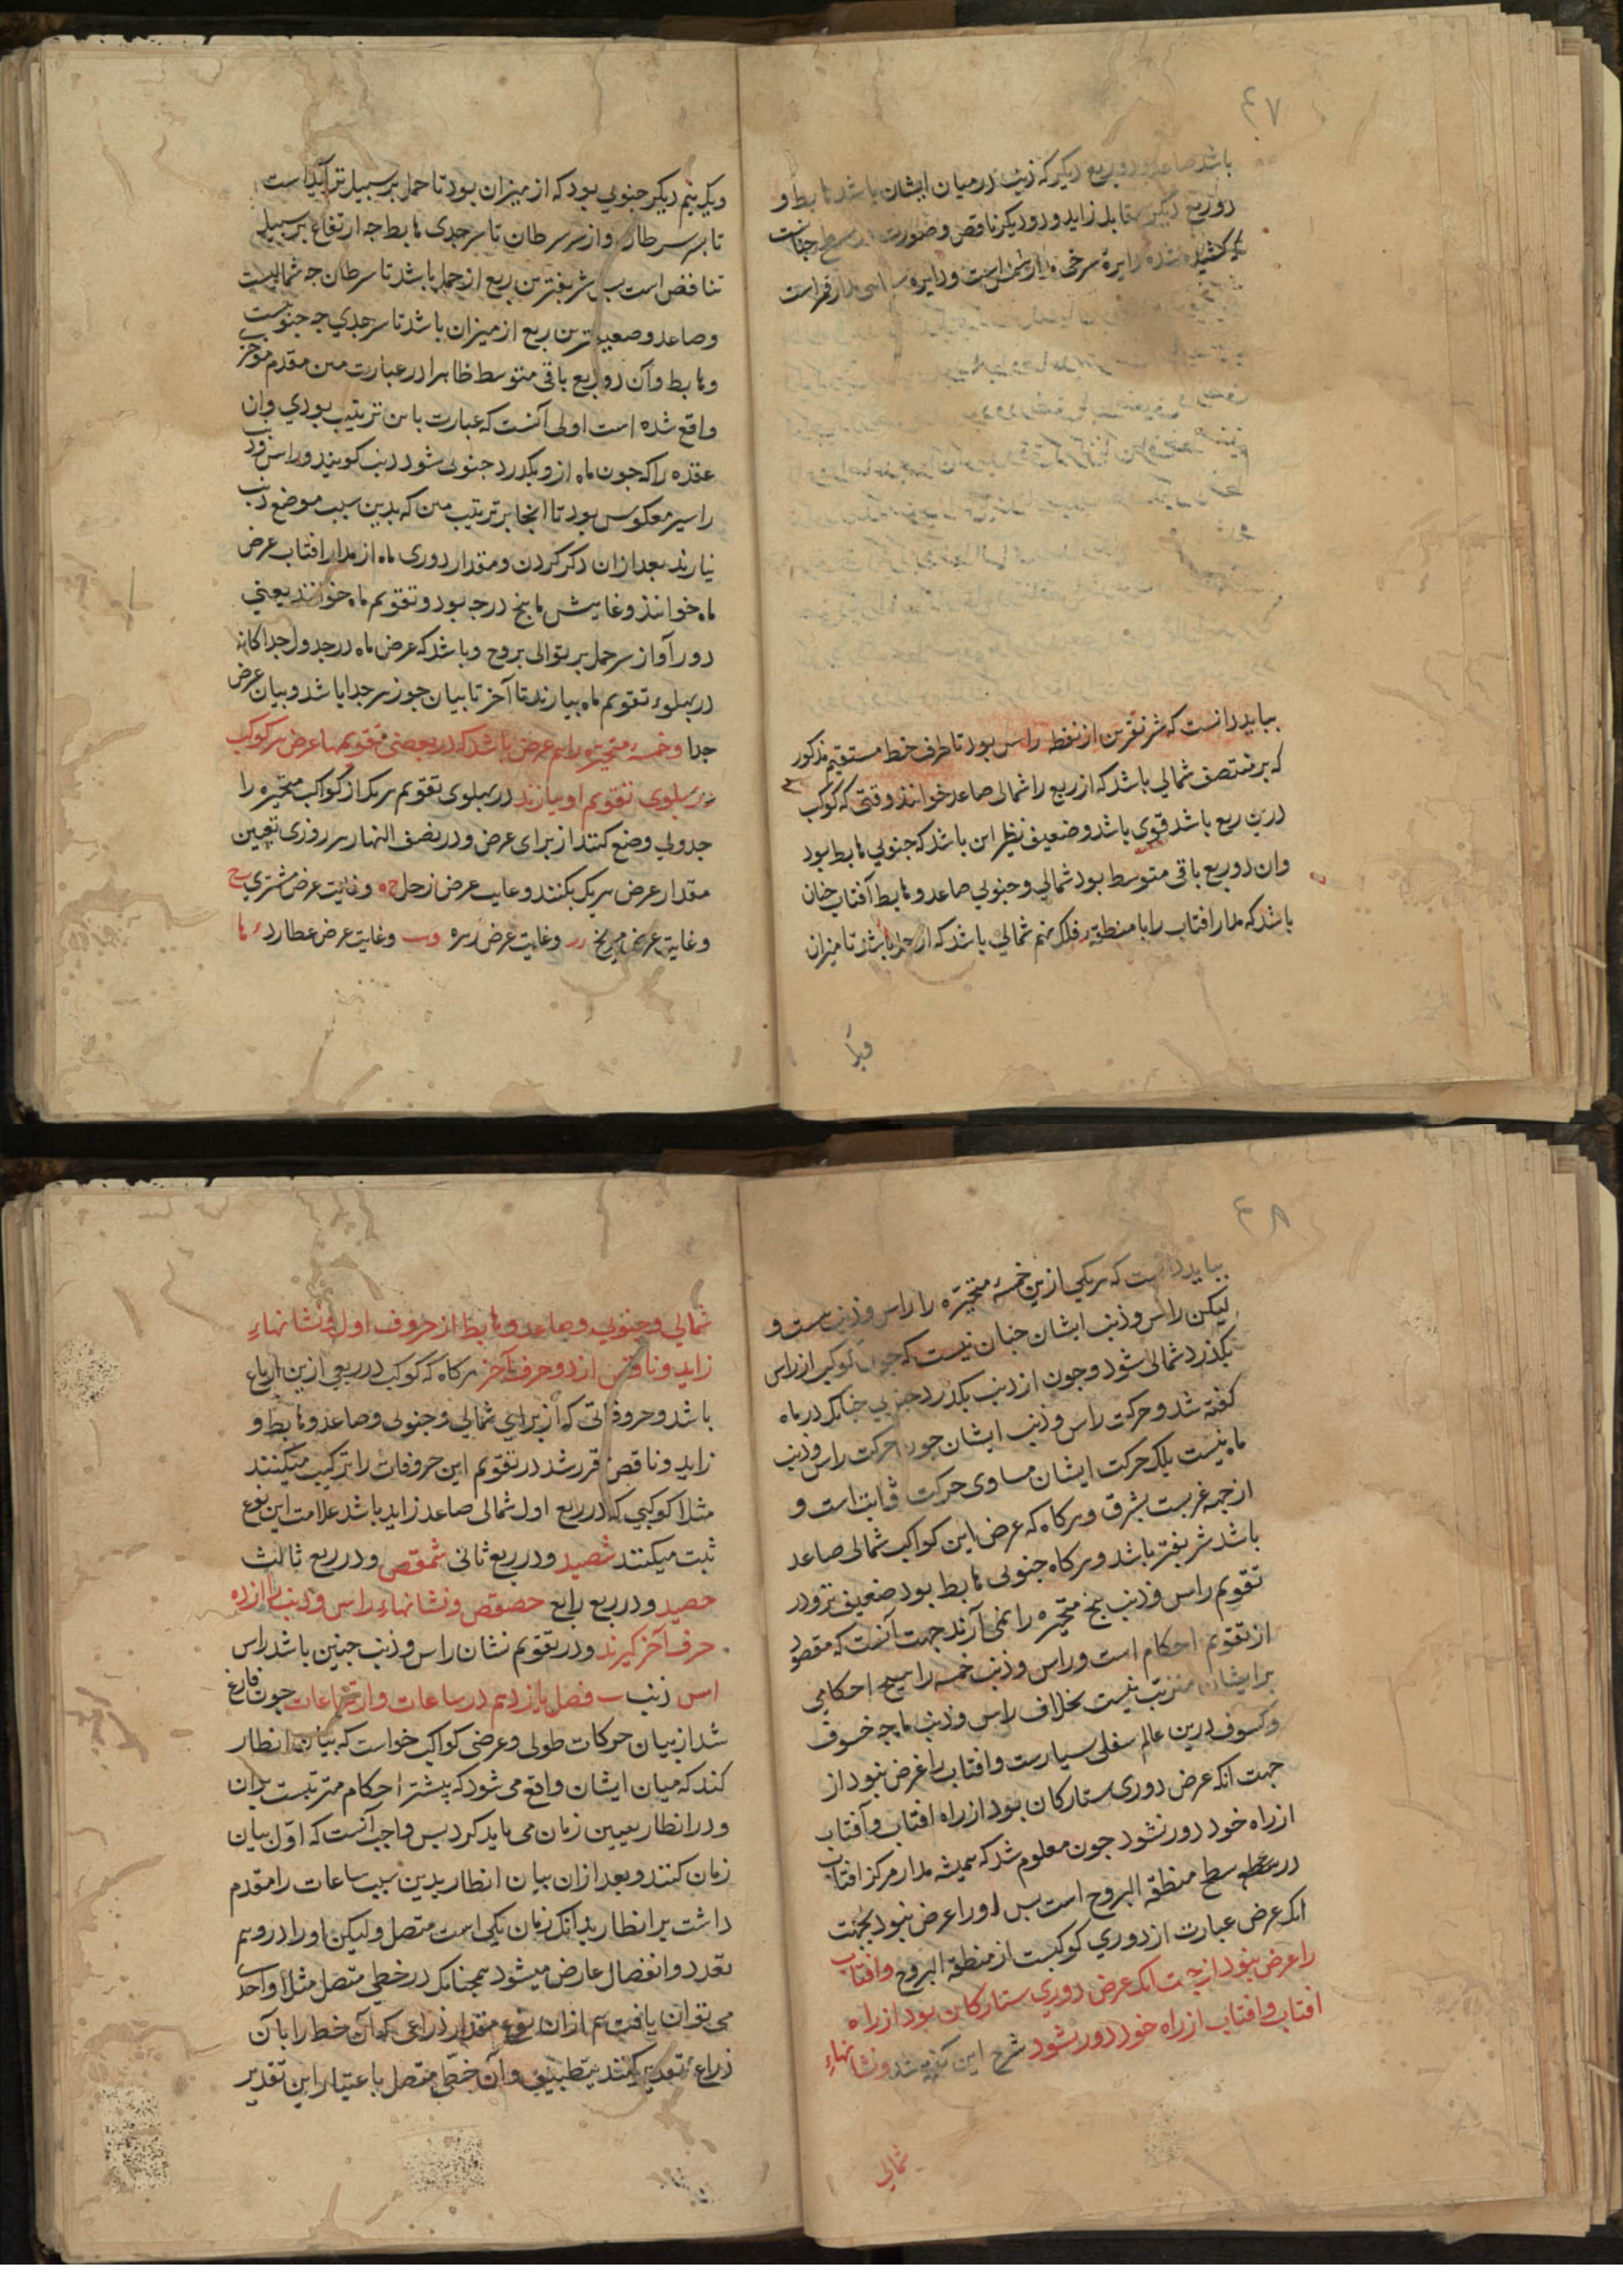 ۴۷
باشد صاعد و دو ربع دیکر که ذنب در میان ایشان باشد هابط و
دو ربع دیکر متقابل زاید و دو دیکر ناقص و صورت این سطح جنانست
که کشیده شده دایرة سرخی مدار شمس است و دایره سیاهی مدار قمر است
ببایددانست که شرفترین از نقطه راس بود تا طرف خط مستقیم مذکور
که بر منتصف شمالی باشد که از ربع را شمالی صاعد خوانند وقتی که کوکب
درین ربع باشد قوی باشد و ضعیف نظیر این باشد که جنوبی هابط بود
وان دو ربع باقی متوسط بود شمالی و جنوبی صاعد و هابط آفتاب جنان
باشد که مدار افتاب را با منطقه فلک نهم شمالی باشد که از حمل باشد تا میزان
ویک
ویک نیم دیکر جنوبی بود که از میزان بود تا حمل بر سبیل تزایداست
تا بسر سرطان و از سر سرطان تا سر جدی هابط جه ارتفاع بر سبیل
تناقض است بس شریفترین ربع از حمل باشد تا سرطان جه شمالیست
وصاعد و ضعیفترین ربع از میزان باشد تا سر جدي جه جنوبیست
وهابط وآن دو ربع باقی متوسط ظاهرا در عبارت متن مقدم موخر
واقع شده است اولی آنست که عبارت باین ترتیب بودي وان
عقده را که جون ماه ازو بکذرد جنوبی شود ذنب کویند و راس وذنب
را سیر معکوس بود تا انجا بر ترتیب متن که بدین سبب موضع ذنب
نیارند بعد ازان ذکر کردن ومقدار دوری ماه از مدار افتاب عرض
ماه خوانند وغایتش تا بنج درجه بود وتقویم ماه خوانند یعني
دور آو از سر حمل بر توالی بروج و باشد که عرض ماه در جدول جداکانه
در بهلوء تقویم ماه بیارند تا آخر تا بیان جوزهر جدا باشد و بیان عرض
جدا وخمسهٔ متحیّره را هم عرض باشد که در بعضی تقویمها عرض هر کوکب
در بهلوی تقویم او بیارند در بهلوی تقویم هریک از کواکب متحیره را
جدولی وضع کنند از برای عرض و در نصف النهار هر روزی تعیین
مقدار عرض هریک بکنند و غایت عرض زحل وغایت عرض مشتري
وغایت عرض مریخ وغایت عرض زهره وغایت عرض عطارد
۴۸
ببایددانست که هریکی ازین خمسهٔ متحیّره را راس وذنب هست و
لیکن راس وذنب ایشان جنان نیست که جون کوکب از راس
بکذرد شمالی شود وجون از ذنب بکذرد جنوبی جنانک در ماه
کفته شد وحرکت راس وذنب ایشان جون حرکت راس وذنب
ماه نیست بلک حرکت ایشان مساوی حرکت ثوابت است و
از جهة غربست بشرق وهرکاه که عرض این کواکب شمالی صاعد
باشد شریفتر باشد وهرکاه جنوبی هابط بود ضعیف تر و در
تقویم راس وذنب بنج متحیره را نمی آرند جهت آنست که مقصود
از تقویم احکام است وراس وذنب خمسه را هیچ احکامی
بر ایشان مترتب نیست بخلاف راس وذنب ماه جه خسوف
وکسوف درین عالم سفلی بسیارست وافتاب را عرض نبود از
جهت انکه عرض دوری ستارکان بود از راه افتاب وآفتاب
از راه خود دور نشود جون معلوم شد که همیشه مدار مرکز افتاب
در سطح منطقة البروج است بس اورا عرض نبود بجهت
انکه عرض عبارت از دوري کوکبست از منطقة البروج وافتاب
را عرض نبود از جهت انکه عرض دوري ستارکان بود از راه
افتاب وافتاب از راه خود دور نشود شرح این کفته شد ونشانهاء
شمالی
شمالي وجنوبي وصاعد وهابط از حروف اول ونشانهاء
زاید وناقص از دو حرف آخر هرکاه که کوکب در ربعی ازین ارباع
باشد وحروفاتی که از برای شمالی وجنوبی وصاعد وهابط و
زاید وناقص مقرر شد در تقویم این حروفات را ترکیب میکنند
مثلا کوکبی که در ربع اول شمالی صاعد زاید باشد علامت این نوع
ثبت میکنند شصید و در ربع ثانی شمقص و در ربع ثالث
حصید و در ربع رابع حصقص ونشانهاء راس وذنب را از ده
حرف آخر کیرند و در تقویم نشان راس وذنب جنین باشد راس
اس ذنب ب فصل یازدهم در ساعات وارتفاعات جون فارغ
شد از بیان حرکات طولی وعرضی کواکب خواست که بیان انظار
کند که میان ایشان واقع می شود که بیشتر احکام مترتبست بران
و در انظار تعیین زمان می باید کرد بس واجب آنست که اوّل بیان
زمان کنند وبعد ازان بیان انظار بدین سبب ساعات را مقدم
داشت بر انظار بدانک زمان یکی است متصل ولیکن اورا در وهم
تعدد وانفصال عارض میشود همچنانک در خطی متصل مثلا واحد
می توان یافت هم ازان نوع مقدار ذراعی که آن خط را بآن
ذراع تقدیر کنند بتطبیق وآن خطّ متصل باعتبار این تقدیر